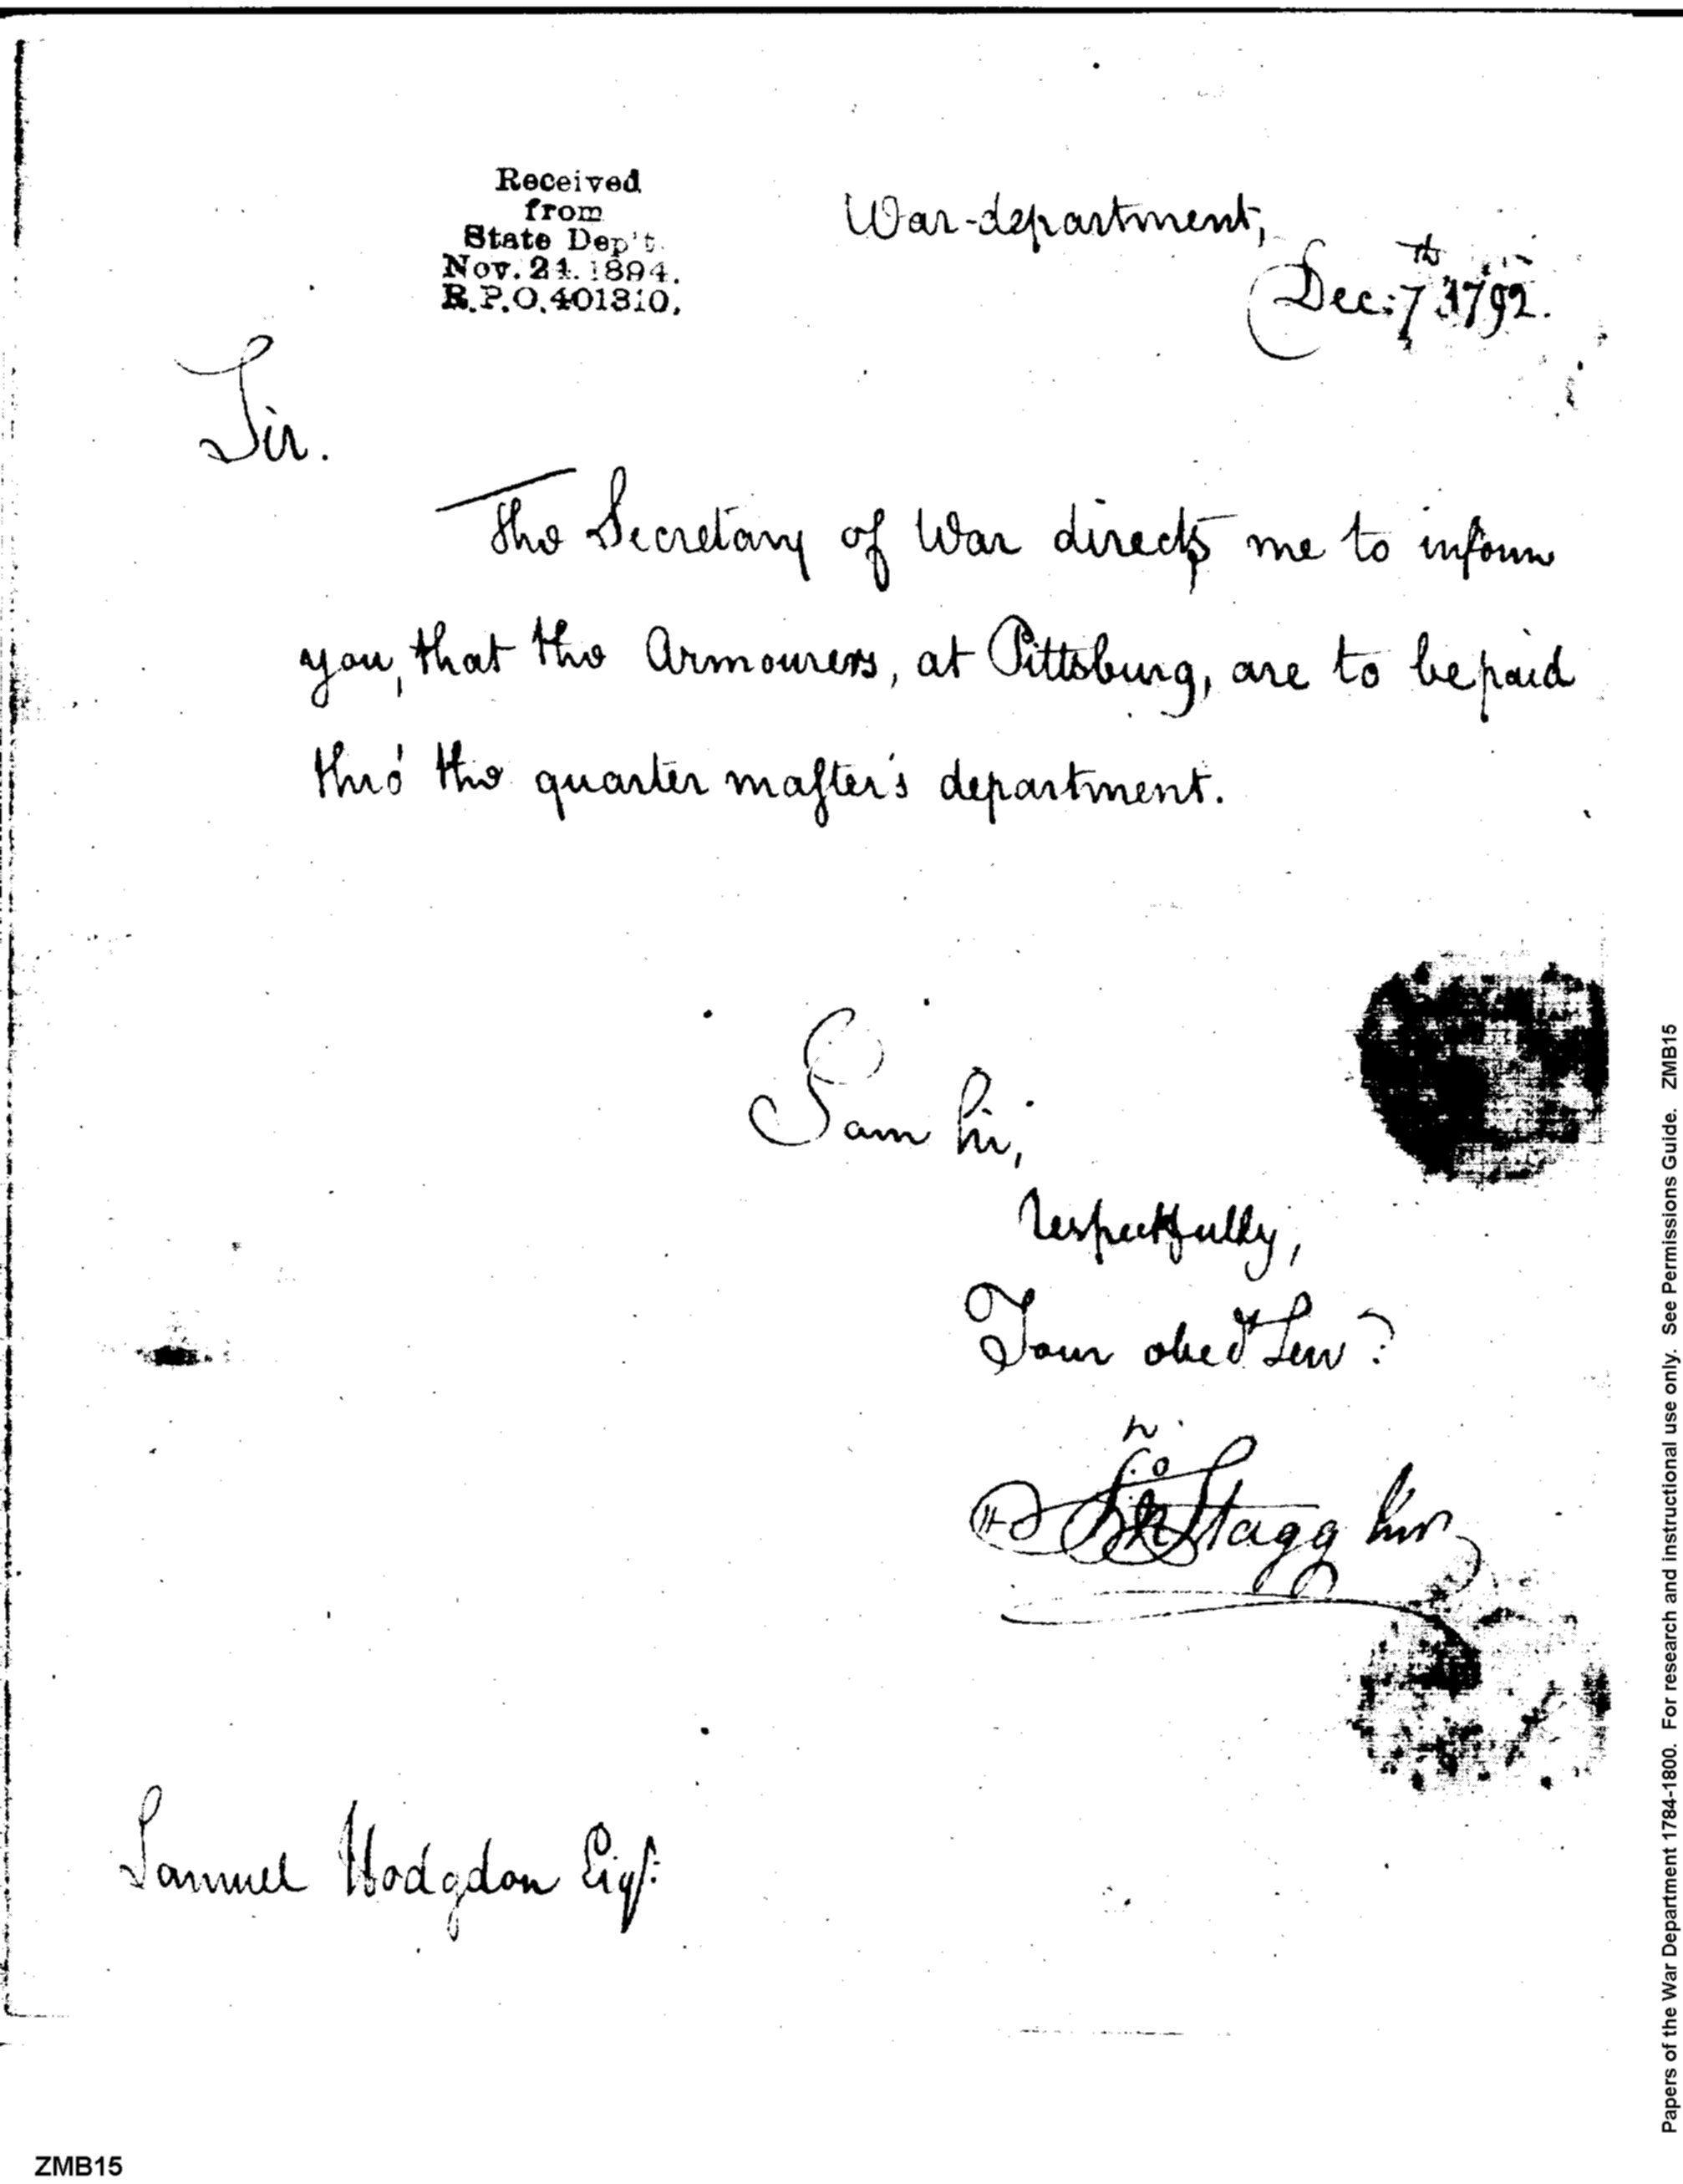 Received
from
State Dep't.
Nov. 21. 1894.
R.P.O. 401310.
War-department,
Dec: 7th 1792.
Sir.
The Secretary of War directs me to inform
you, that the Armourers, at Pittsburg, are to be paid
thro' the quarter master's department.
I am Sir,
respectfully,
Your obed Serv
Jno Stagg Junr
Samuel Hodgdon Esqr:
Papers of the War Department 1784-1800. For research and instructional use only. See Permissions Guide. ZMB15
ZMB15